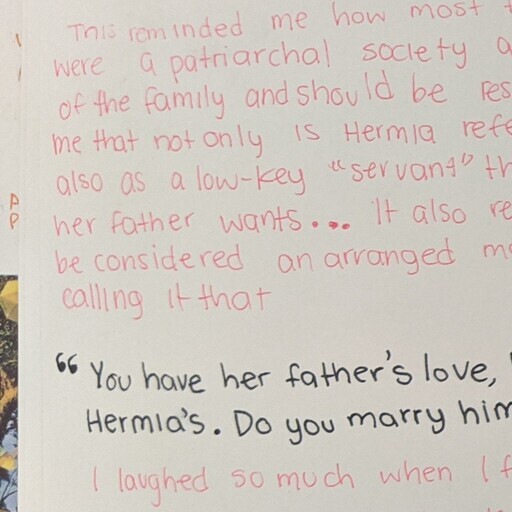 This reminded me how most
were a patriarchal society a
of the family and should be res
me that not only is Hermia refe
also as a low-key "servant" th
her father wants... It also re
be considered an arranged m
calling it that
"You have her father's love,
Hermia's. Do you marry him
I laughed so much when I f